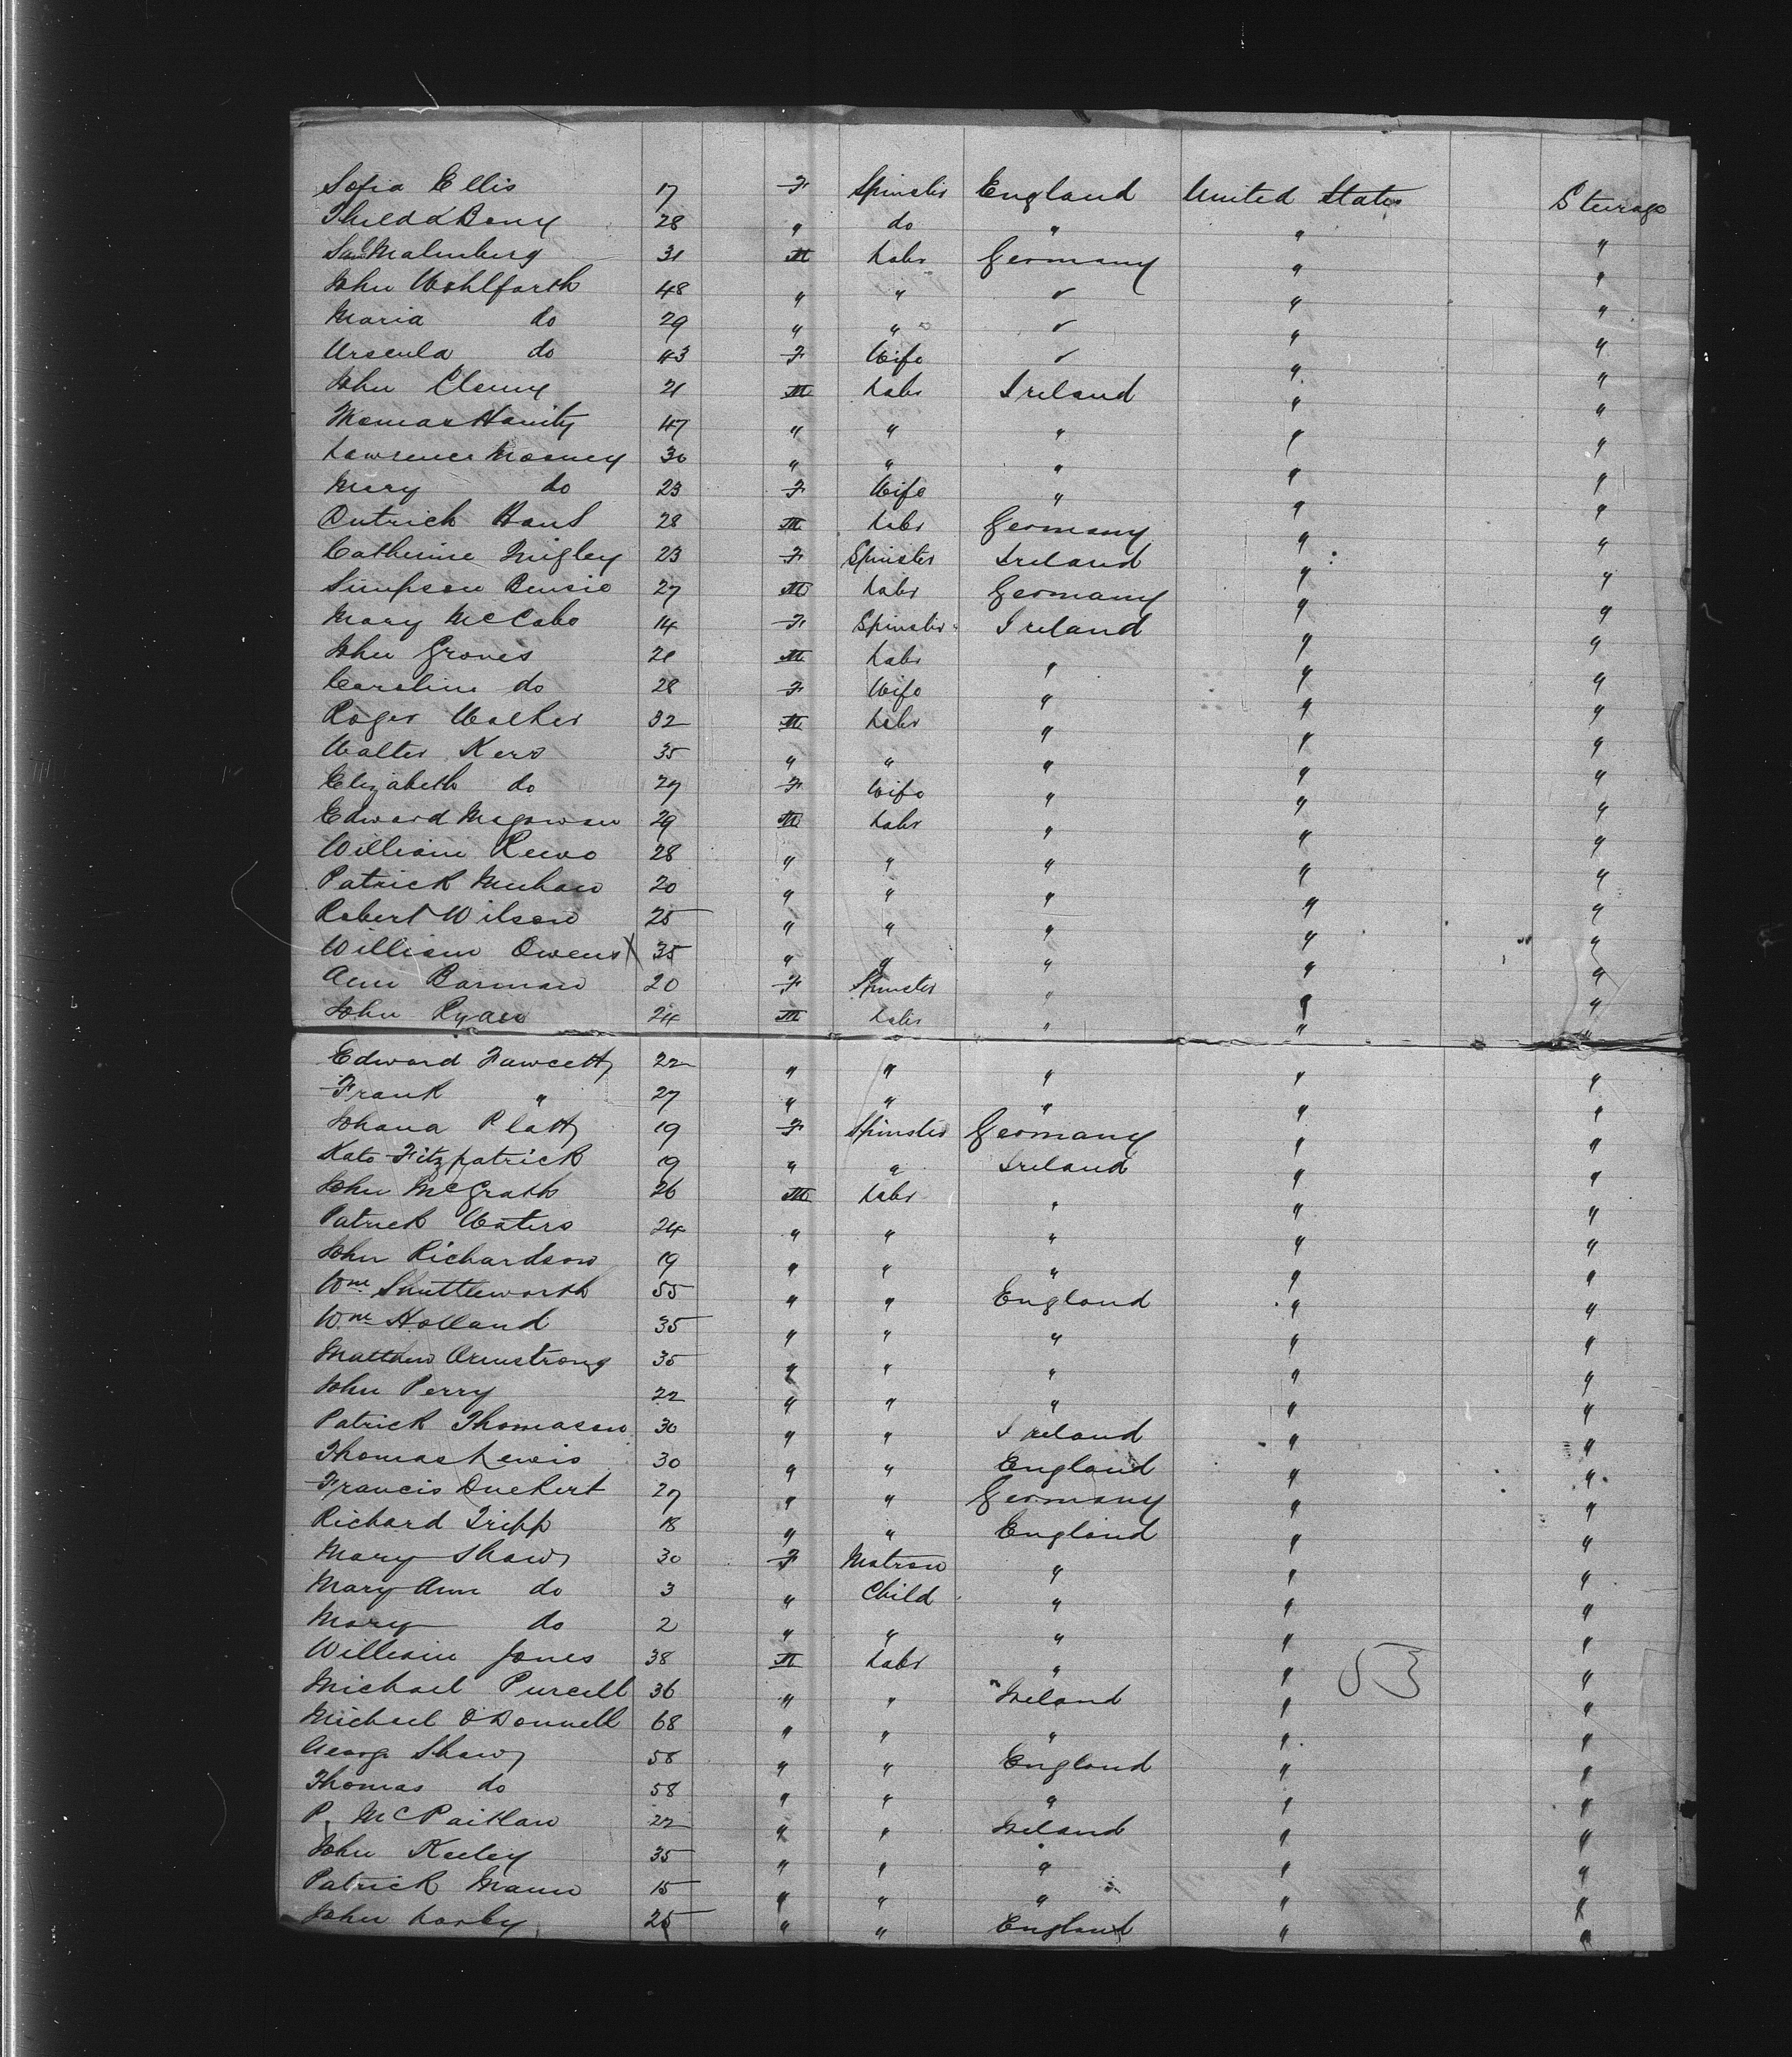 Sofia Ellis 17 F Spinster England United States Steerage
28 " do " " "
Malmberg 31 M Labr Germany " "
John Wohlfarth 48 " " " " "
Maria do 29 " " " " "
Ursula do 43 F Wife " " "
John 21 M Labr Ireland " "
Thomas Hanity 47 " " " " "
Lawrence Mooney 30 " " " " "
Mary do 23 F Wife " " "
28 M Labr Germany " "
Catherine Quigley 23 F Spinster Ireland " "
Simpson 27 M Labr Germany " "
Mary McCabe 14 F Spinster Ireland " "
John Groves 21 M Labr " " "
Caroline do 28 F Wife " " "
Roger Walker 32 M Labr " " "
Walter Kerr 35 " " " " "
Elizabeth do 27 F Wife " " "
Edward Magowan 29 M Labr " " "
William 28 " " " " "
Patrick 20 " " " " "
Robert Wilson 25 " " " " "
William Owens X 35 " " " " "
Ann Barman 20 F Spinster " " "
John Ryan 24 M Labr " " "
Edward Fawcett 22 " " " " "
Frank " 27 " " " " "
Johana Platt 19 F Spinster Germany " "
Kate Fitzpatrick 19 " " Ireland " "
John McGrath 26 M Labr " " "
Patrick Waters 24 " " " " "
John Richardson 19 " " " " "
Wm Shuttleworth 55 " " England " "
Wm Holland 35 " " " " "
Matthew Armstrong 35 " " " " "
John Perry 22 " " " " "
Patrick Thomason 30 " " Ireland " "
Thomas Lewis 30 " " England " "
Francis Duckert 27 " " Germany " "
Richard Tripp 18 " " England " "
Mary Shaw 30 F Matron " " "
Mary Ann do 3 " Child " " "
Mary do 2 " " " " "
William Jones 38 M Labr " " "
53
Michael Purcell 36 " " Ireland " "
Michael O'Donnell 68 " " " " "
George Shaw 58 " " England " "
Thomas do 58 " " " " "
P. McPaitlan 22 " " Ireland " "
John Keeley 35 " " " " "
Patrick Mann 15 " " " " "
John 25 " " England " "